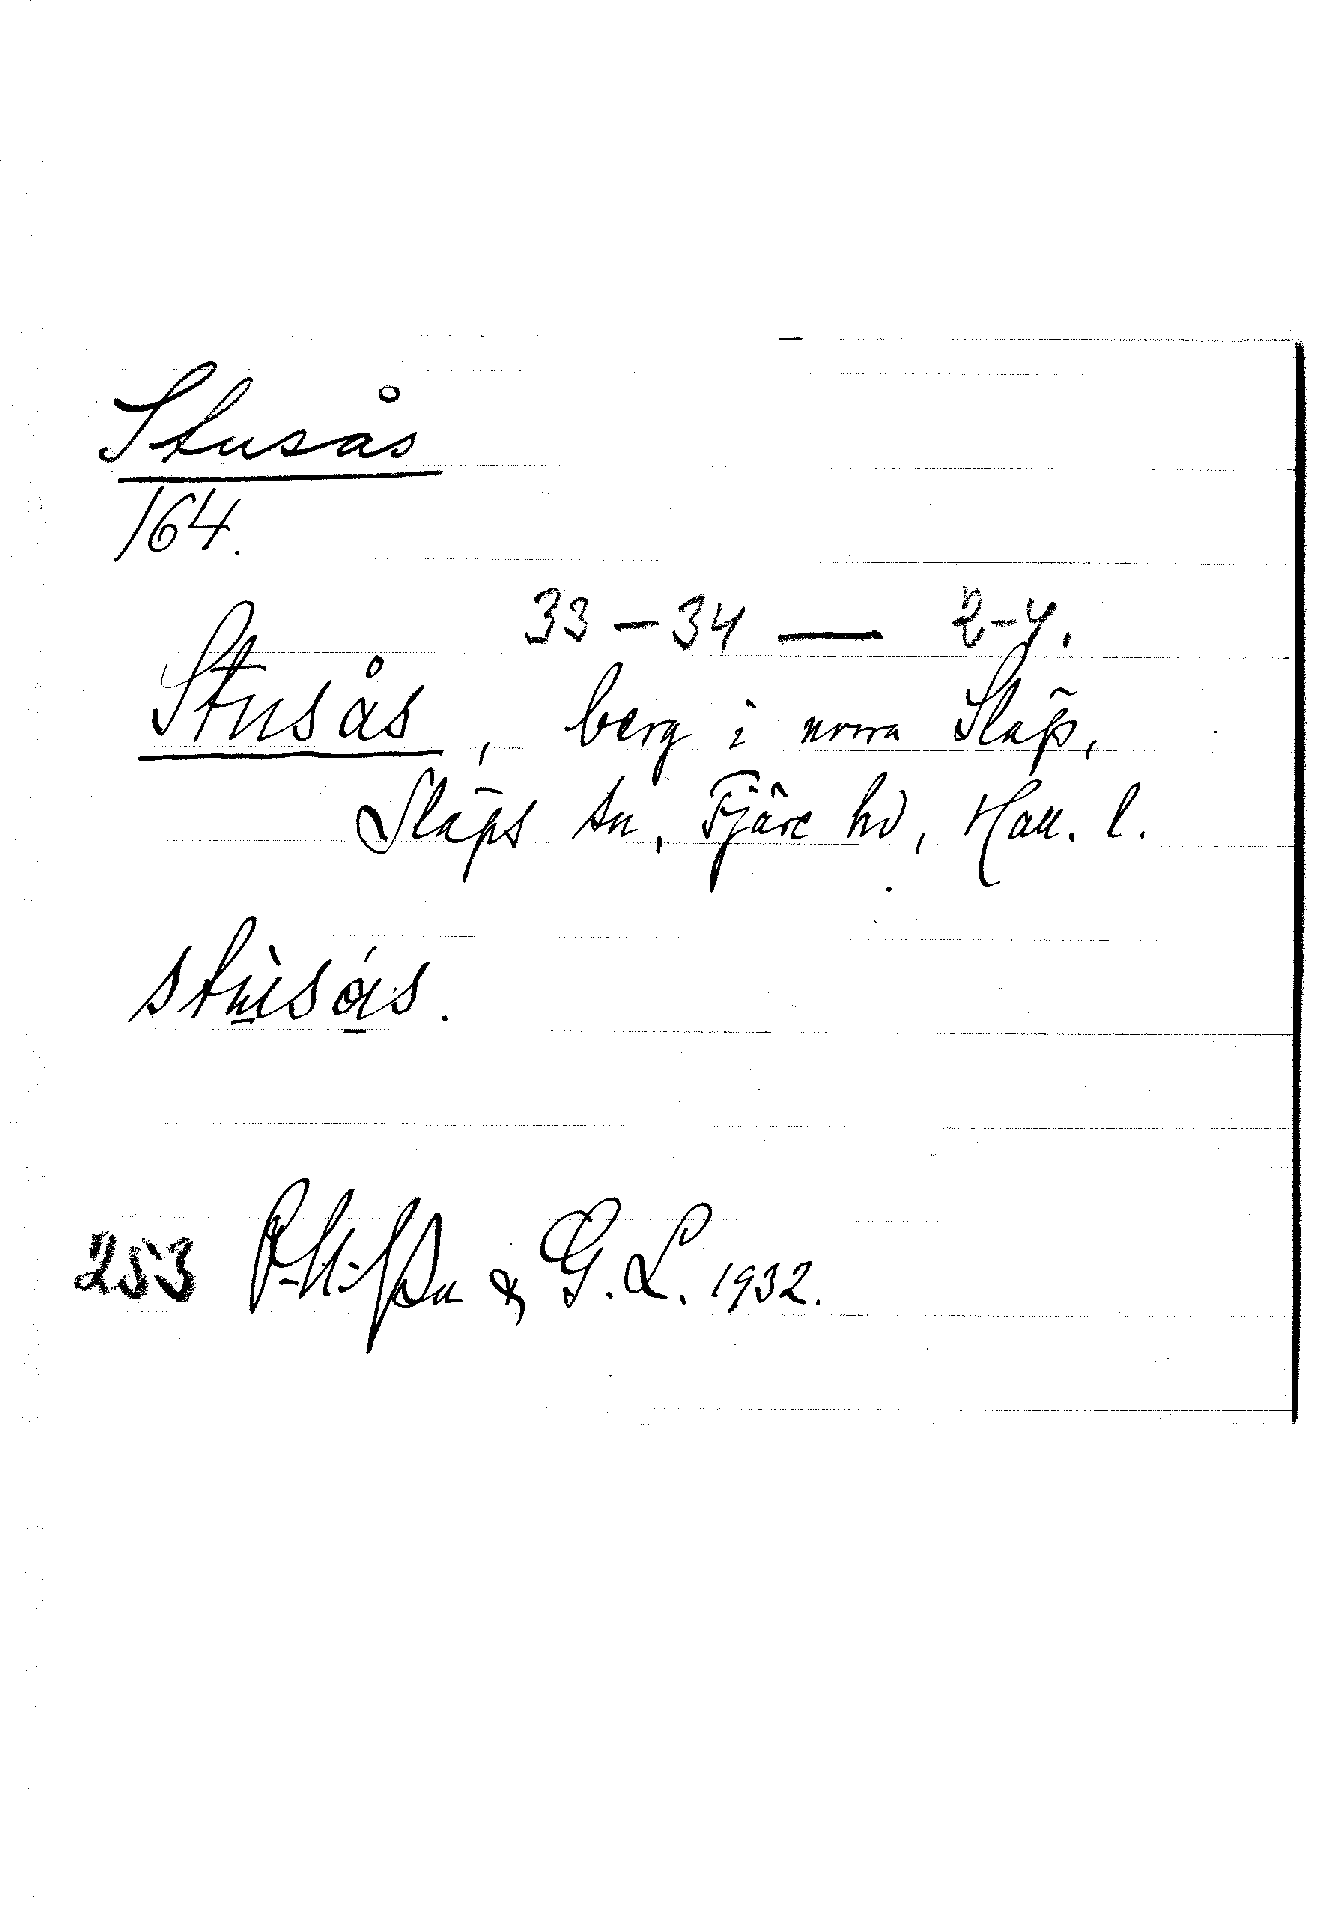 Stusås
164.
33 – 34 — 2-4.
Stusås, berg i norra Släp,
Släps sn, Fjäre hd, Hall. l.
stùsás.
253 & G. L. 1932.